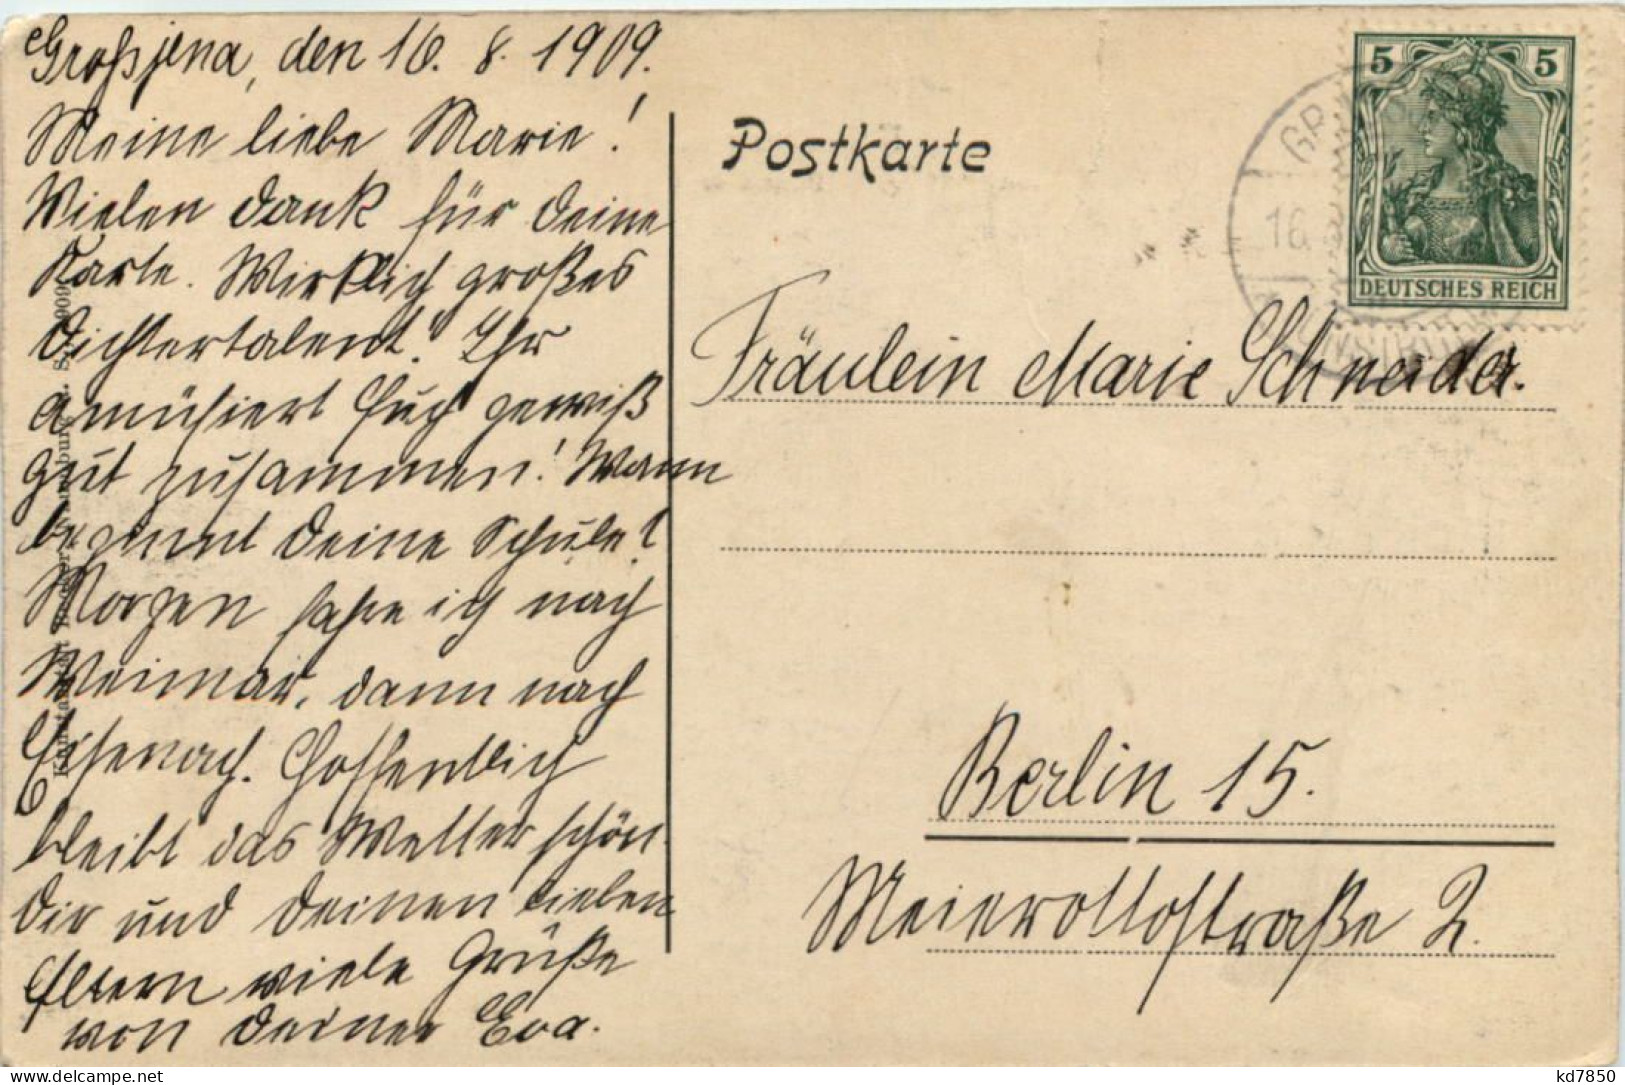 Großjena, den 16. 8. 1909.
Meine liebe Marie!
Vielen Dank für Deine
Karte. Wirklich großes
Dichtertalent! Ihr
amüsiert Euch gewiß
gut zusammen! Wann
beginnt Deine Schule?
Morgen fahre ich nach
Weimar, dann nach
Eisenach. Hoffentlich
bleibt das Wetter schön.
Dir und Deinen lieben
Eltern viele Grüße
von Deiner Eva.
Postkarte
5 5
DEUTSCHES REICH
16.
Fräulein Marie Schneider.
Berlin 15.
Meierottostraße 2.
kd7850